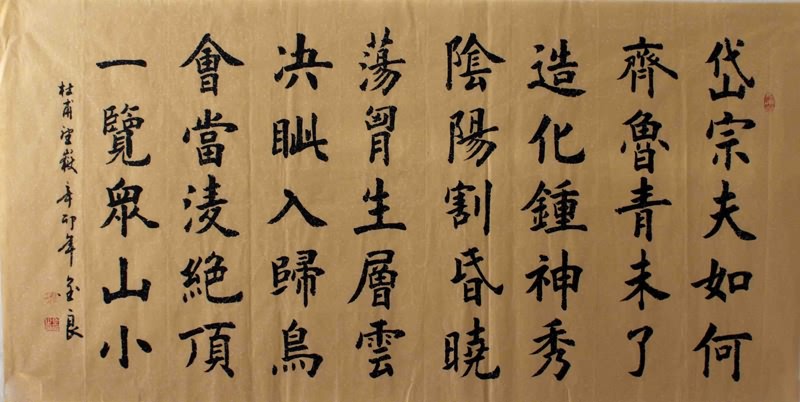 岱宗夫如何
齊魯青未了
造化鍾神秀
陰陽割昏曉
蕩胷生層雲
决眦入歸鳥
會當淩絕頂
一覽眾山小
杜甫望嶽辛卯年金良